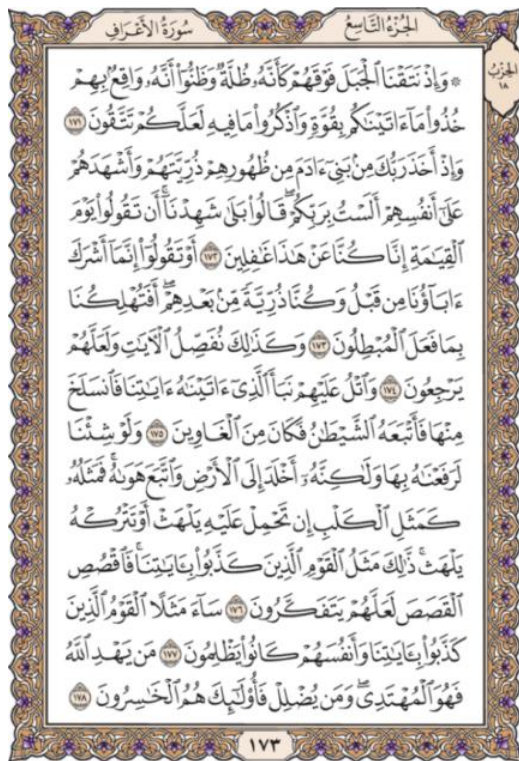 سُورَةُ الأَعْرَافِ
الجُزْءُ التَّاسِعُ
الحِزْبُ
١٨
۞ وَإِذْ نَتَقْنَا ٱلْجَبَلَ فَوْقَهُمْ كَأَنَّهُۥ ظُلَّةٌ وَظَنُّوٓا۟ أَنَّهُۥ وَاقِعٌۢ بِهِمْ
خُذُوا۟ مَآ ءَاتَيْنَٰكُم بِقُوَّةٍ وَٱذْكُرُوا۟ مَا فِيهِ لَعَلَّكُمْ تَتَّقُونَ ١٧١
وَإِذْ أَخَذَ رَبُّكَ مِنۢ بَنِىٓ ءَادَمَ مِن ظُهُورِهِمْ ذُرِّيَّتَهُمْ وَأَشْهَدَهُمْ
عَلَىٰٓ أَنفُسِهِمْ أَلَسْتُ بِرَبِّكُمْ ۖ قَالُوا۟ بَلَىٰ شَهِدْنَآ ۛ أَن تَقُولُوا۟ يَوْمَ
ٱلْقِيَٰمَةِ إِنَّا كُنَّا عَنْ هَٰذَا غَٰفِلِينَ ١٧٢ أَوْ تَقُولُوٓا۟ إِنَّمَآ أَشْرَكَ
ءَابَآؤُنَا مِن قَبْلُ وَكُنَّا ذُرِّيَّةً مِّنۢ بَعْدِهِمْ ۖ أَفَتُهْلِكُنَا
بِمَا فَعَلَ ٱلْمُبْطِلُونَ ١٧٣ وَكَذَٰلِكَ نُفَصِّلُ ٱلْءَايَٰتِ وَلَعَلَّهُمْ
يَرْجِعُونَ ١٧٤ وَٱتْلُ عَلَيْهِمْ نَبَأَ ٱلَّذِىٓ ءَاتَيْنَٰهُ ءَايَٰتِنَا فَٱنسَلَخَ
مِنْهَا فَأَتْبَعَهُ ٱلشَّيْطَٰنُ فَكَانَ مِنَ ٱلْغَاوِينَ ١٧٥ وَلَوْ شِئْنَا
لَرَفَعْنَٰهُ بِهَا وَلَٰكِنَّهُۥٓ أَخْلَدَ إِلَى ٱلْأَرْضِ وَٱتَّبَعَ هَوَىٰهُ ۚ فَمَثَلُهُۥ
كَمَثَلِ ٱلْكَلْبِ إِن تَحْمِلْ عَلَيْهِ يَلْهَثْ أَوْ تَتْرُكْهُ
يَلْهَث ۚ ذَّٰلِكَ مَثَلُ ٱلْقَوْمِ ٱلَّذِينَ كَذَّبُوا۟ بِـَٔايَٰتِنَا ۚ فَٱقْصُصِ
ٱلْقَصَصَ لَعَلَّهُمْ يَتَفَكَّرُونَ ١٧٦ سَآءَ مَثَلًا ٱلْقَوْمُ ٱلَّذِينَ
كَذَّبُوا۟ بِـَٔايَٰتِنَا وَأَنفُسَهُمْ كَانُوا۟ يَظْلِمُونَ ١٧٧ مَن يَهْدِ ٱللَّهُ
فَهُوَ ٱلْمُهْتَدِى ۖ وَمَن يُضْلِلْ فَأُو۟لَٰٓئِكَ هُمُ ٱلْخَٰسِرُونَ ١٧٨
١٧٣